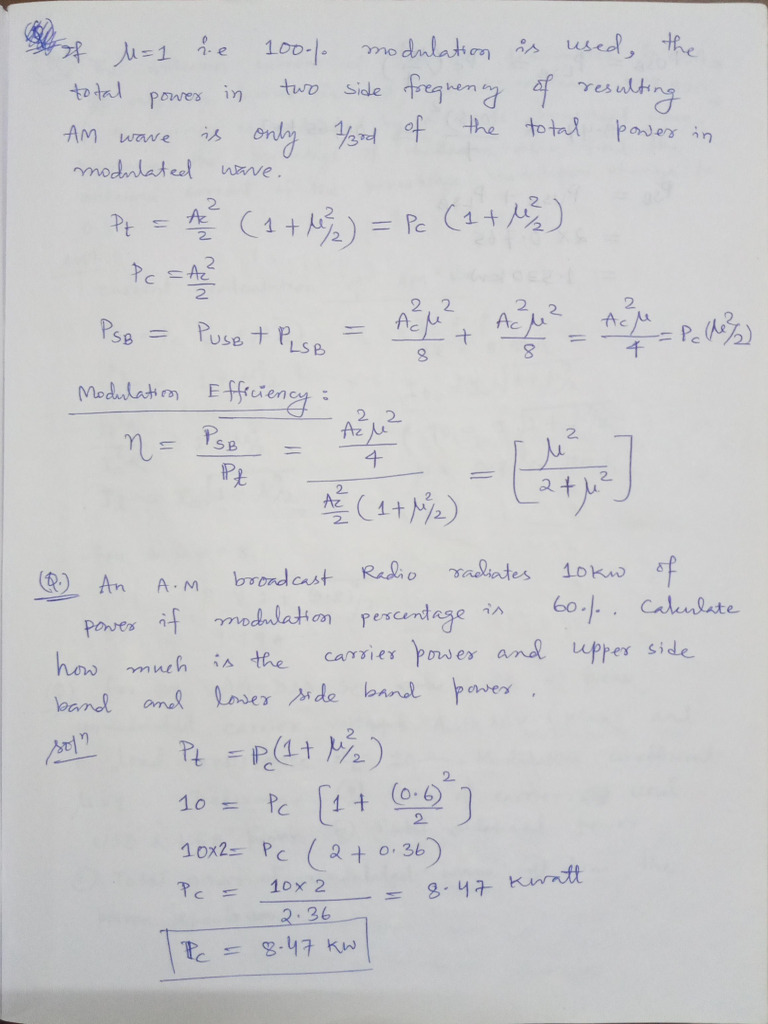 If μ=1 i.e 100./. modulation is used, the
total power in two side frequency of resulting
AM wave is only 1/3rd of the total power in
modulated wave.
Pt = Ac²/2 (1 + μ²/2) = Pc (1 + μ²/2)
Pc = Ac²/2
PSB = PUSB + PLSB = Ac²μ²/8 + Ac²μ²/8 = Ac²μ/4 = Pc (μ²/2)
Modulation Efficiency :
η = PSB/Pt = (Ac²μ²/4) / (Ac²/2 (1 + μ²/2)) = [μ²/(2+μ²)]
(Q.) An A.M broadcast Radio radiates 10KW of
power if modulation percentage is 60./. . Calculate
how much is the carrier power and upper side
band and lower side band power.
solⁿ Pt = Pc(1 + μ²/2)
10 = Pc [1 + (0.6)²/2]
10×2 = Pc (2 + 0.36)
Pc = 10×2/2.36 = 8.47 Kwatt
Pc = 8.47 KW